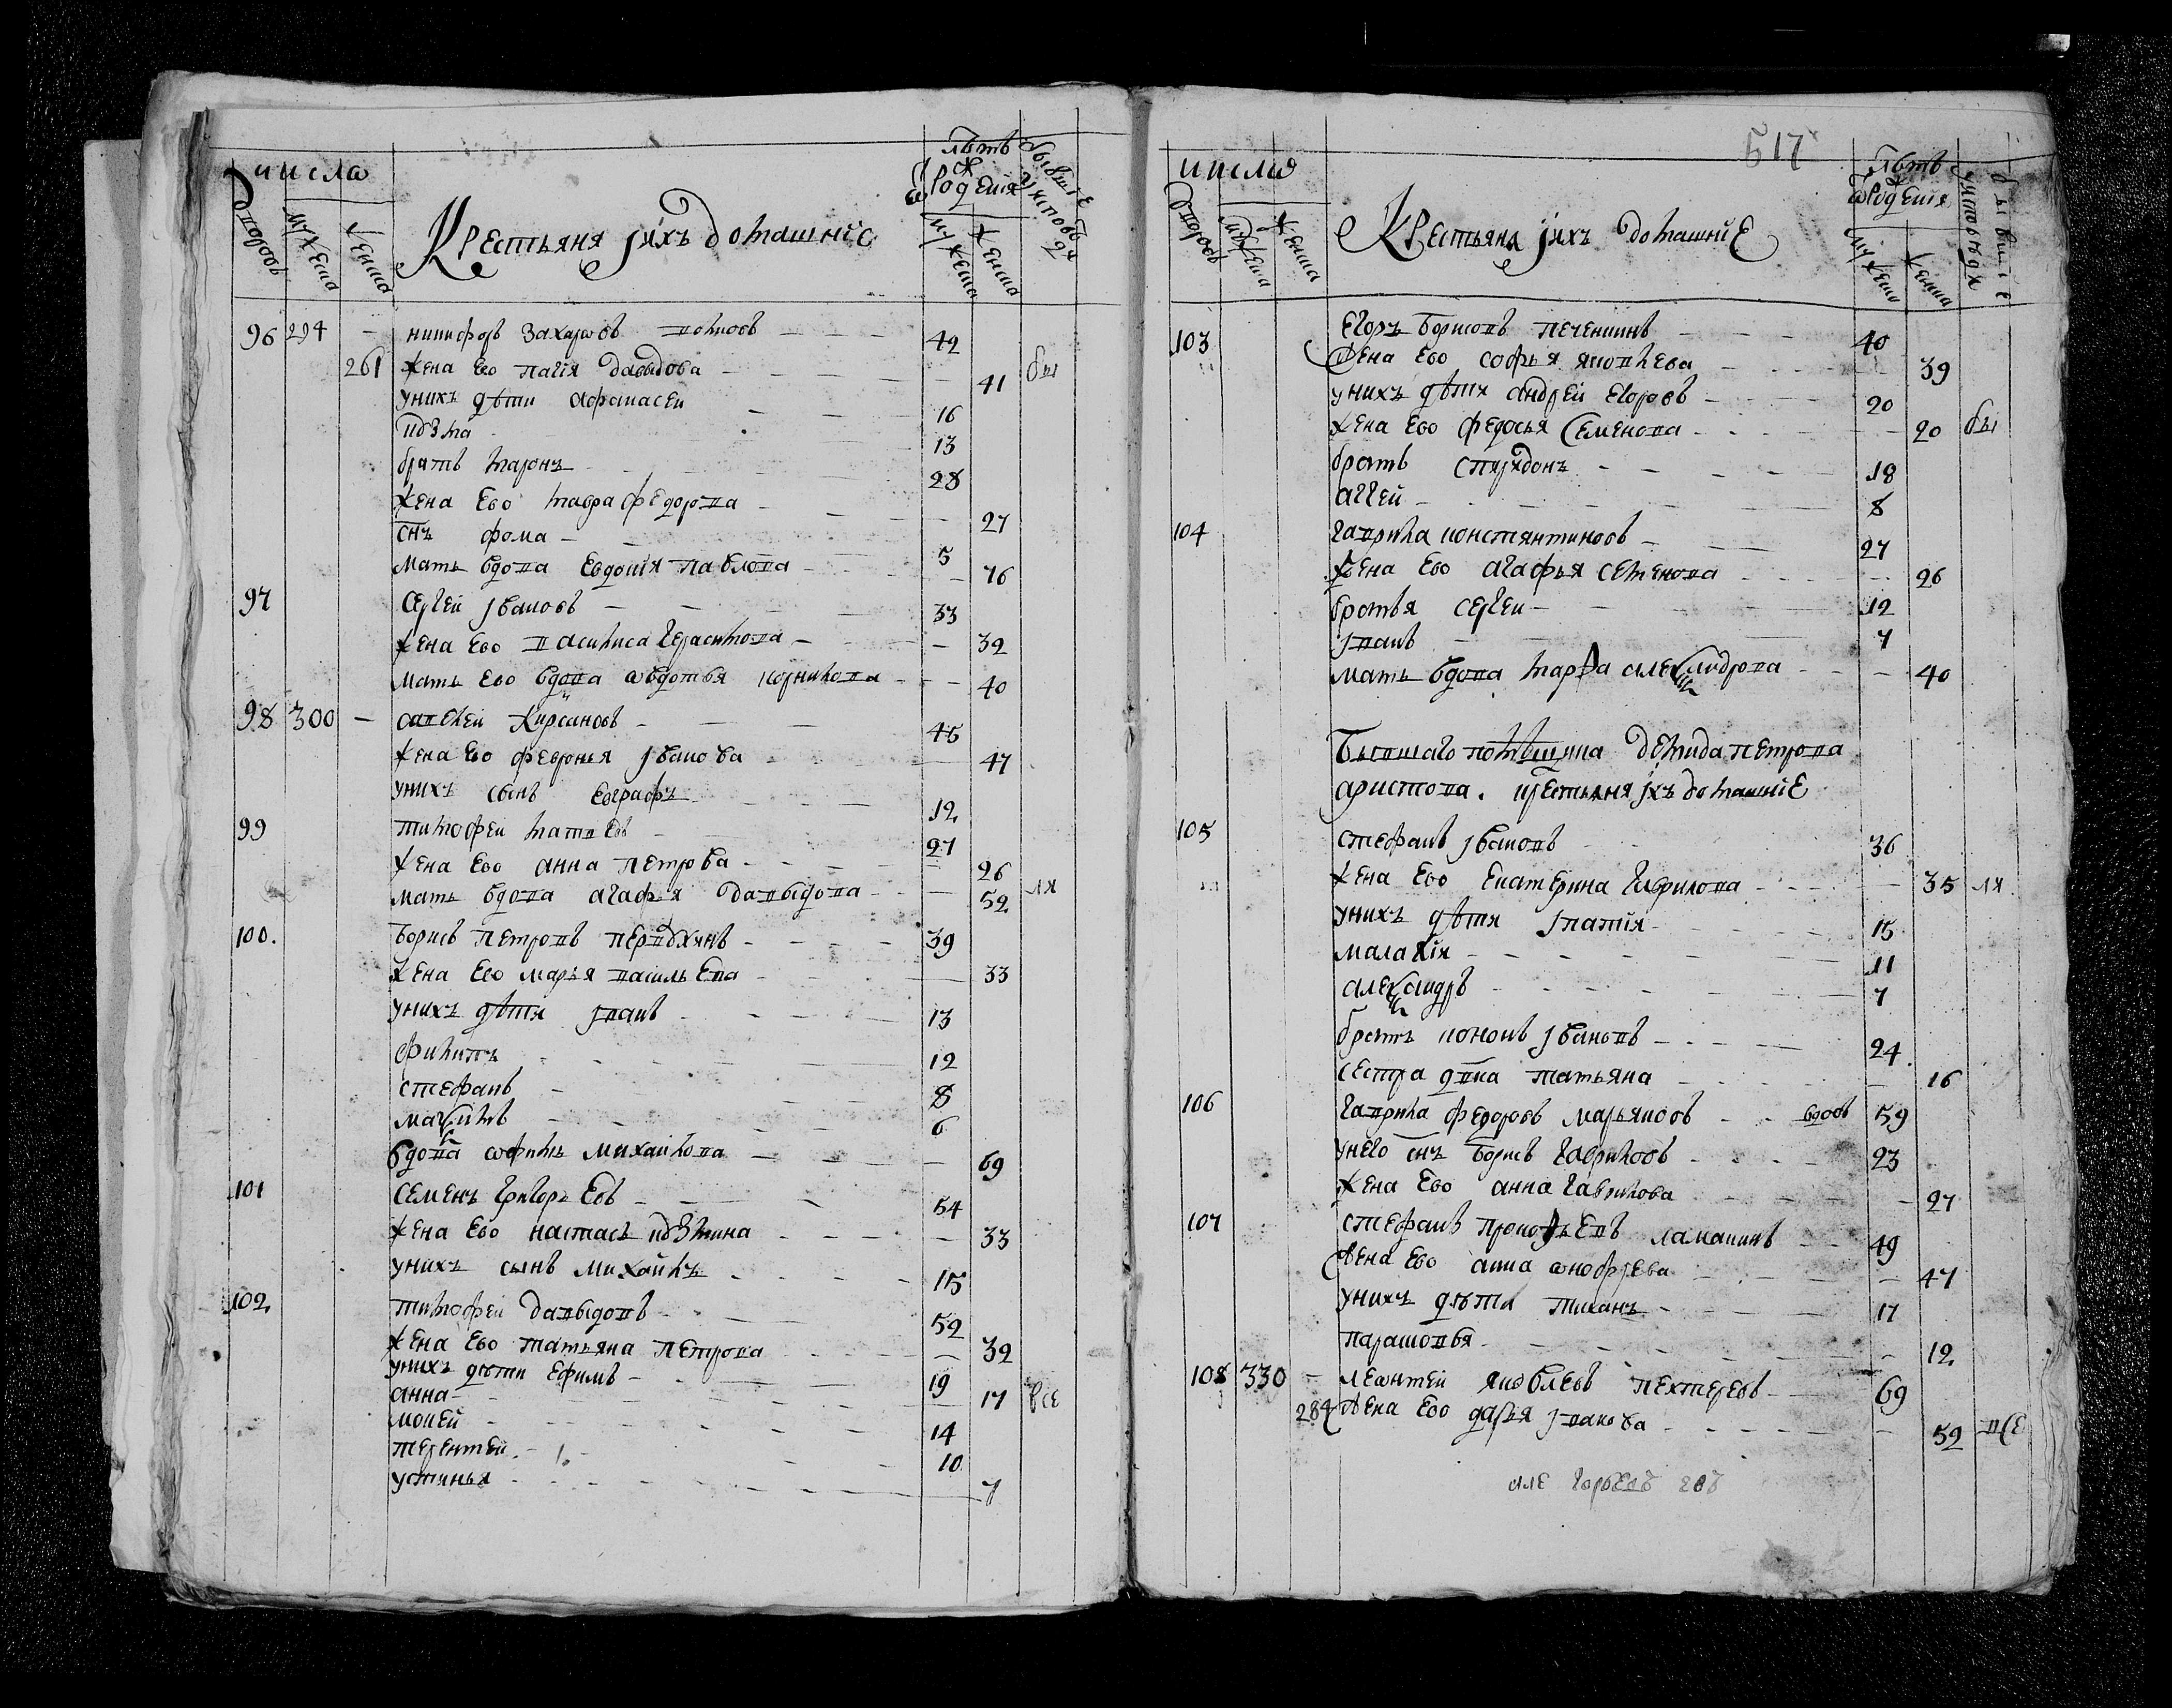 числа
лѣтъ
ѿ рожения
бывшие у исповеди
дворовъ
мужеска
женска
Крестьяня и ихъ домашние
мужеска
женска
96 294 — никифоръ захаровъ — — 42
261 жена ево давыдова — — 41 бы
у нихъ дѣти афонасеи — 16
кузма — 13
братъ миронъ — 28
жена ево мавра федорова — 27
снъ фома — 5
мать вдова евдокия павлова — 76
97 сергеи ивановъ — 33
жена ево василиса герасимова — 32
мать ево вдова авдотья корнилова — 40
98 300 — савелеи кирсановъ — 45
жена ево февронья иванова — 47
у нихъ сынъ евграфъ — 12
99 тимофеи матвеевъ — 27
жена ево анна петрова — 26
мать вдова агафья давыдова — 52 ля
100. борисъ петровъ — 39
жена ево марья васильева — 33
у нихъ дѣти иванъ — 13
филипъ — 12
стефанъ — 8
маѯимъ — 6
вдова михаилова — 69
101 семенъ григорьевъ — 54
жена ево настасья кузмина — 33
у нихъ сынъ михаилъ — 15
102 тимофеи давыдовъ — 52
жена ево татьяна петрова — 32
у нихъ дѣти ефимъ — 19
анна — 17 все
мокей — 14
терентеи — 10
устинья — 7
517
числа
лѣтъ
ѿ рожения
бывшие у исповеди
дворовъ
мужеска
женска
Крестьяня и ихъ домашние
мужеска
женска
103 егоръ борисовъ печенкинъ — 40
жена ево софья яковлева — 39
у нихъ дѣти андреи егоровъ — 20
жена ево федосья семенова — 20 бы
братъ спиридонъ — 18
аггеи — 8
104 гаврила константиновъ — 27
жена ево агафья семенова — 26
братья сергеи — 12
иванъ — 7
мать вдова марфа алеѯандрова — 40
Бывшаго помѣщика демида петрова
аристова. крестьяня и ихъ домашние
105 стефанъ ивановъ — 36
жена ево екатерина гаврилова — 35 ля
у нихъ дѣти игнатия — 15
малахия — 11
алеѯандръ — 7
братъ кононъ ивановъ — 24
сестра двка татьяна — 16
106 гаврила федоровъ марьяновъ — вдовъ 59
у него снъ борисъ гавриловъ — 23
жена ево анна гаврилова — 27
107 стефанъ прокофьевъ ламакинъ — 49
жена ево анна онофреева — 47
у нихъ дѣти тиханъ — 17
парасковья — 12
108 330 — леонтеи яковлевъ пехтеревъ — 69
284 жена ево дарья иванова — 52 все